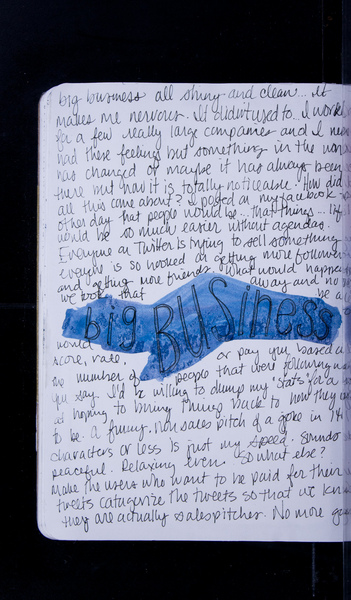 big business all shiny and clean... it
makes me nervous. It didn't used to... I work
for a few really large companies and I never
had these feelings but something in the wor
has changed or maybe it has always been
there but now it is totally noticeable. How did
all this come about? I posted on my facebook
other day that people would be... that things... life
would be so much easier without agendas.
Everyone on Twitter is trying to sell something
everyone is so hooked on getting more follower
and getting more friends. What would happen
we took that away and no
be a
big BUSiness
would
score, rate, or pay you based
the number of people that were following
you say. I'd be willing to dump my 'stats' for a
at hoping to bring things back to how they
to be. A funny, non sales pitch of a joke in 14
characters or less is just my speed. Sounds
peaceful. Relaxing even. So what else?
Make the users who want to be paid for their
tweets categorize the tweets so that we know
they are actually salespitches. No more